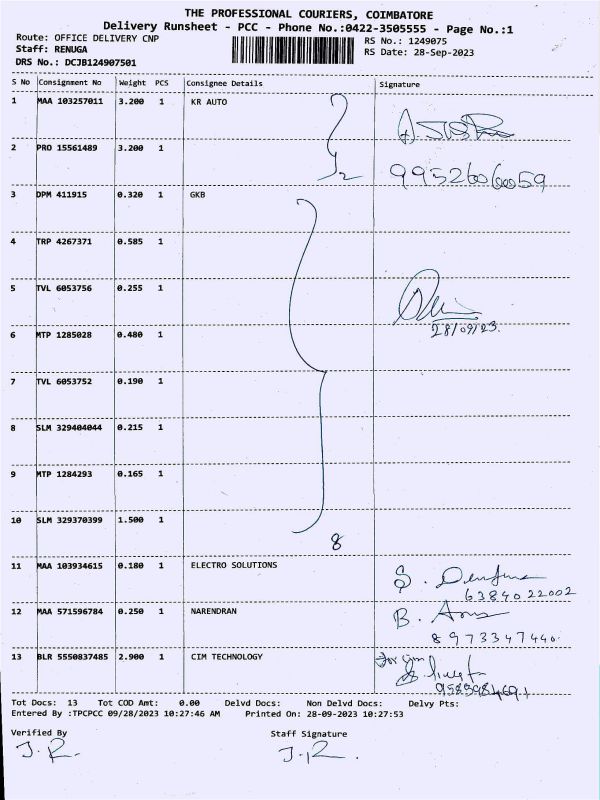 THE PROFESSIONAL COURIERS, COIMBATORE
Delivery Runsheet - PCC - Phone No.:0422-3505555 - Page No.:1
Route: OFFICE DELIVERY CNP RS No.: 1249075
Staff: RENUGA RS Date: 28-Sep-2023
DRS No.: DCJB124907501
S No Consignment No Weight PCS Consignee Details Signature
1 MAA 103257011 3.200 1 KR AUTO
2 PRO 15561489 3.200 1
2
3 DPM 411915 0.320 1 GKB
4 TRP 4267371 0.585 1
5 TVL 6053756 0.255 1
28/09/23.
6 MTP 1285028 0.480 1
7 TVL 6053752 0.190 1
8 SLM 329404044 0.215 1
9 MTP 1284293 0.165 1
10 SLM 329370399 1.500 1
8
11 MAA 103934615 0.180 1 ELECTRO SOLUTIONS S.
6384022002
12 MAA 571596784 0.250 1 NARENDRAN B.
8973347440.
13 BLR 5550837485 2.900 1 CIM TECHNOLOGY for
Tot Docs: 13 Tot COD Amt: 0.00 Delvd Docs: Non Delvd Docs: Delvy Pts:
Entered By :TPCPCC 09/28/2023 10:27:46 AM Printed On: 28-09-2023 10:27:53
Verified By Staff Signature
J.R. J.R.